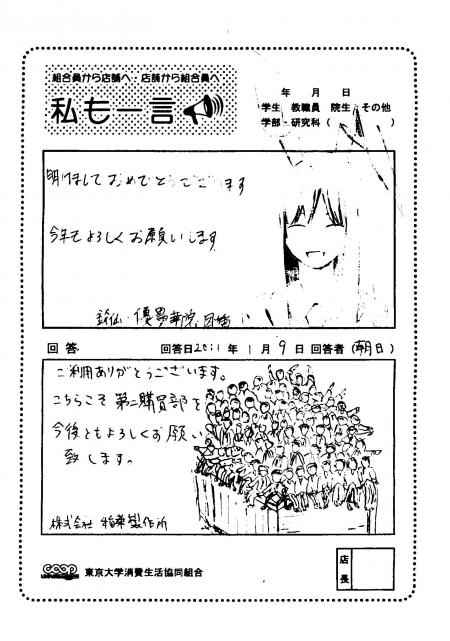 組合員から店舗へ・店舗から組合員へ
私も一言
年 月 日
学生 教職員 院生 その他
学部・研究科( )
明けまして おめでとうございます
今年もよろしくお願いします
回答 回答日2011年1月9日 回答者(朝日)
ご利用ありがとうございます。
こちらこそ 第二購買部を
今後ともよろしくお願い
致します。
株式会社 製作所
店長
coop 東京大学消費生活協同組合